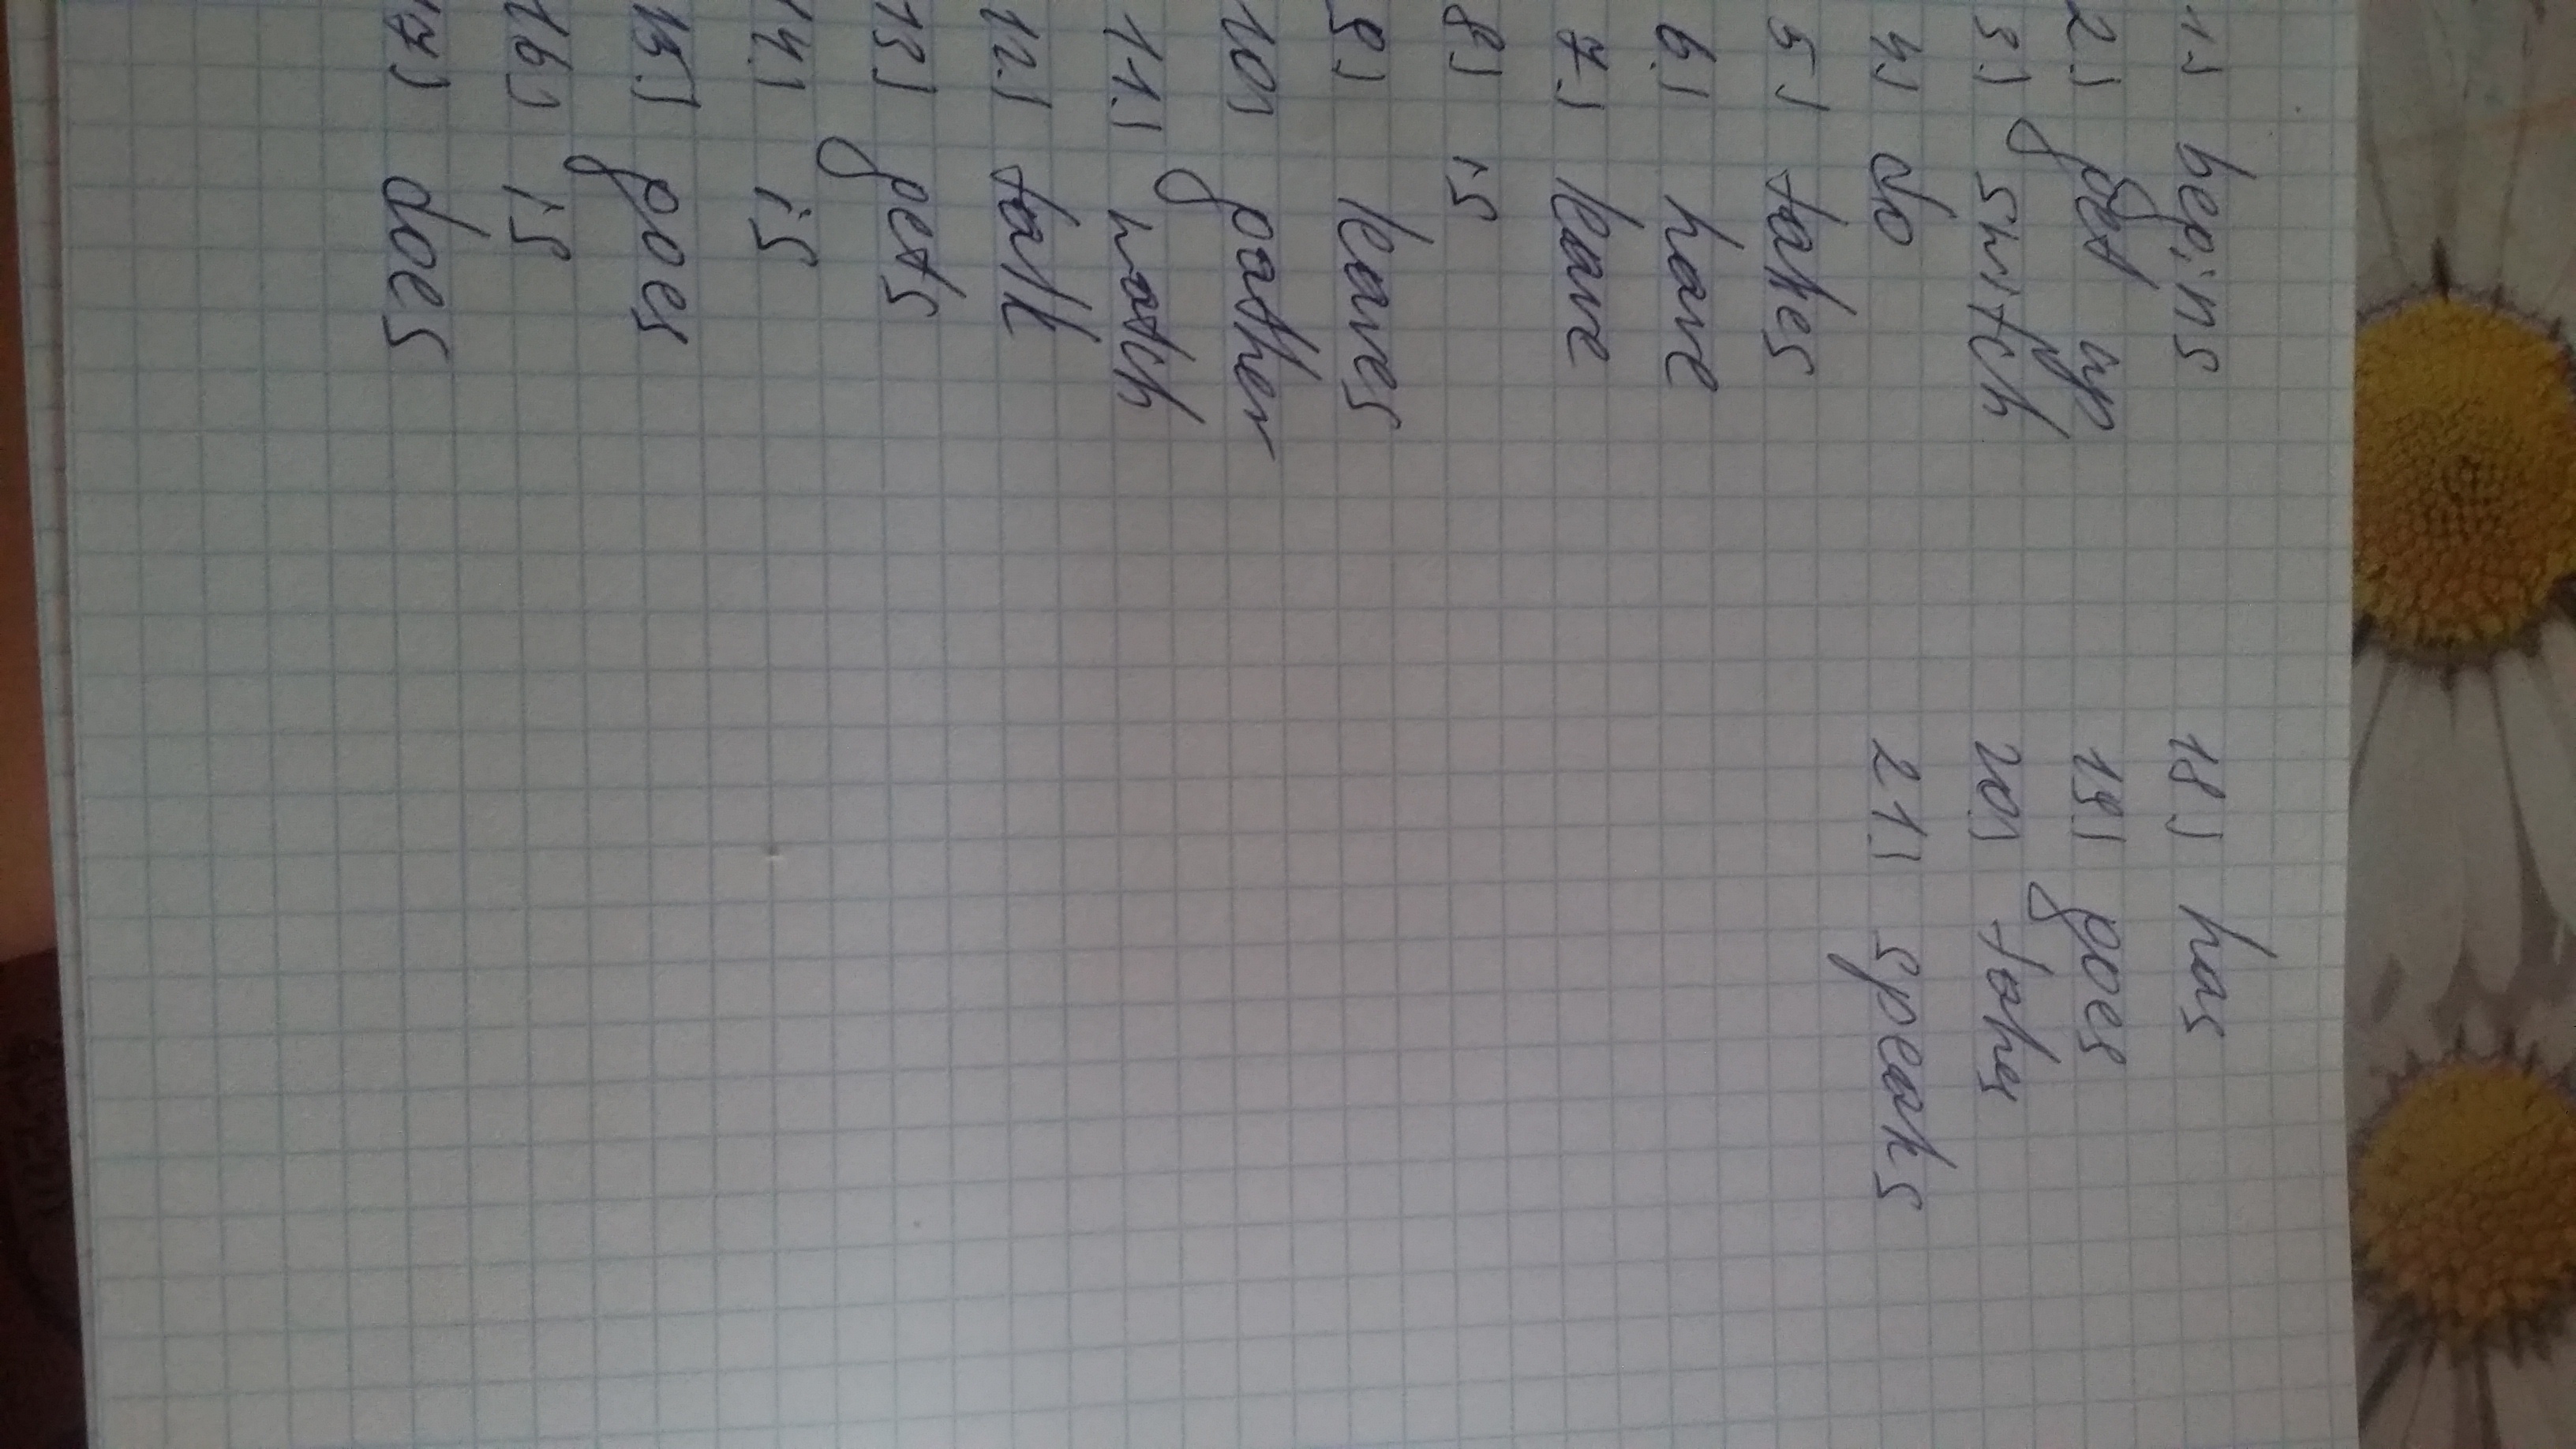 1.) begins
2.) get up
3.) switch
4.) do
5.) takes
6.) have
7.) leave
8.) is
9.) leaves
10.) gather
11.) watch
12.) talk
13.) gets
14.) is
15.) goes
16.) is
17.) does
18.) has
19.) goes
20.) takes
21.) speaks